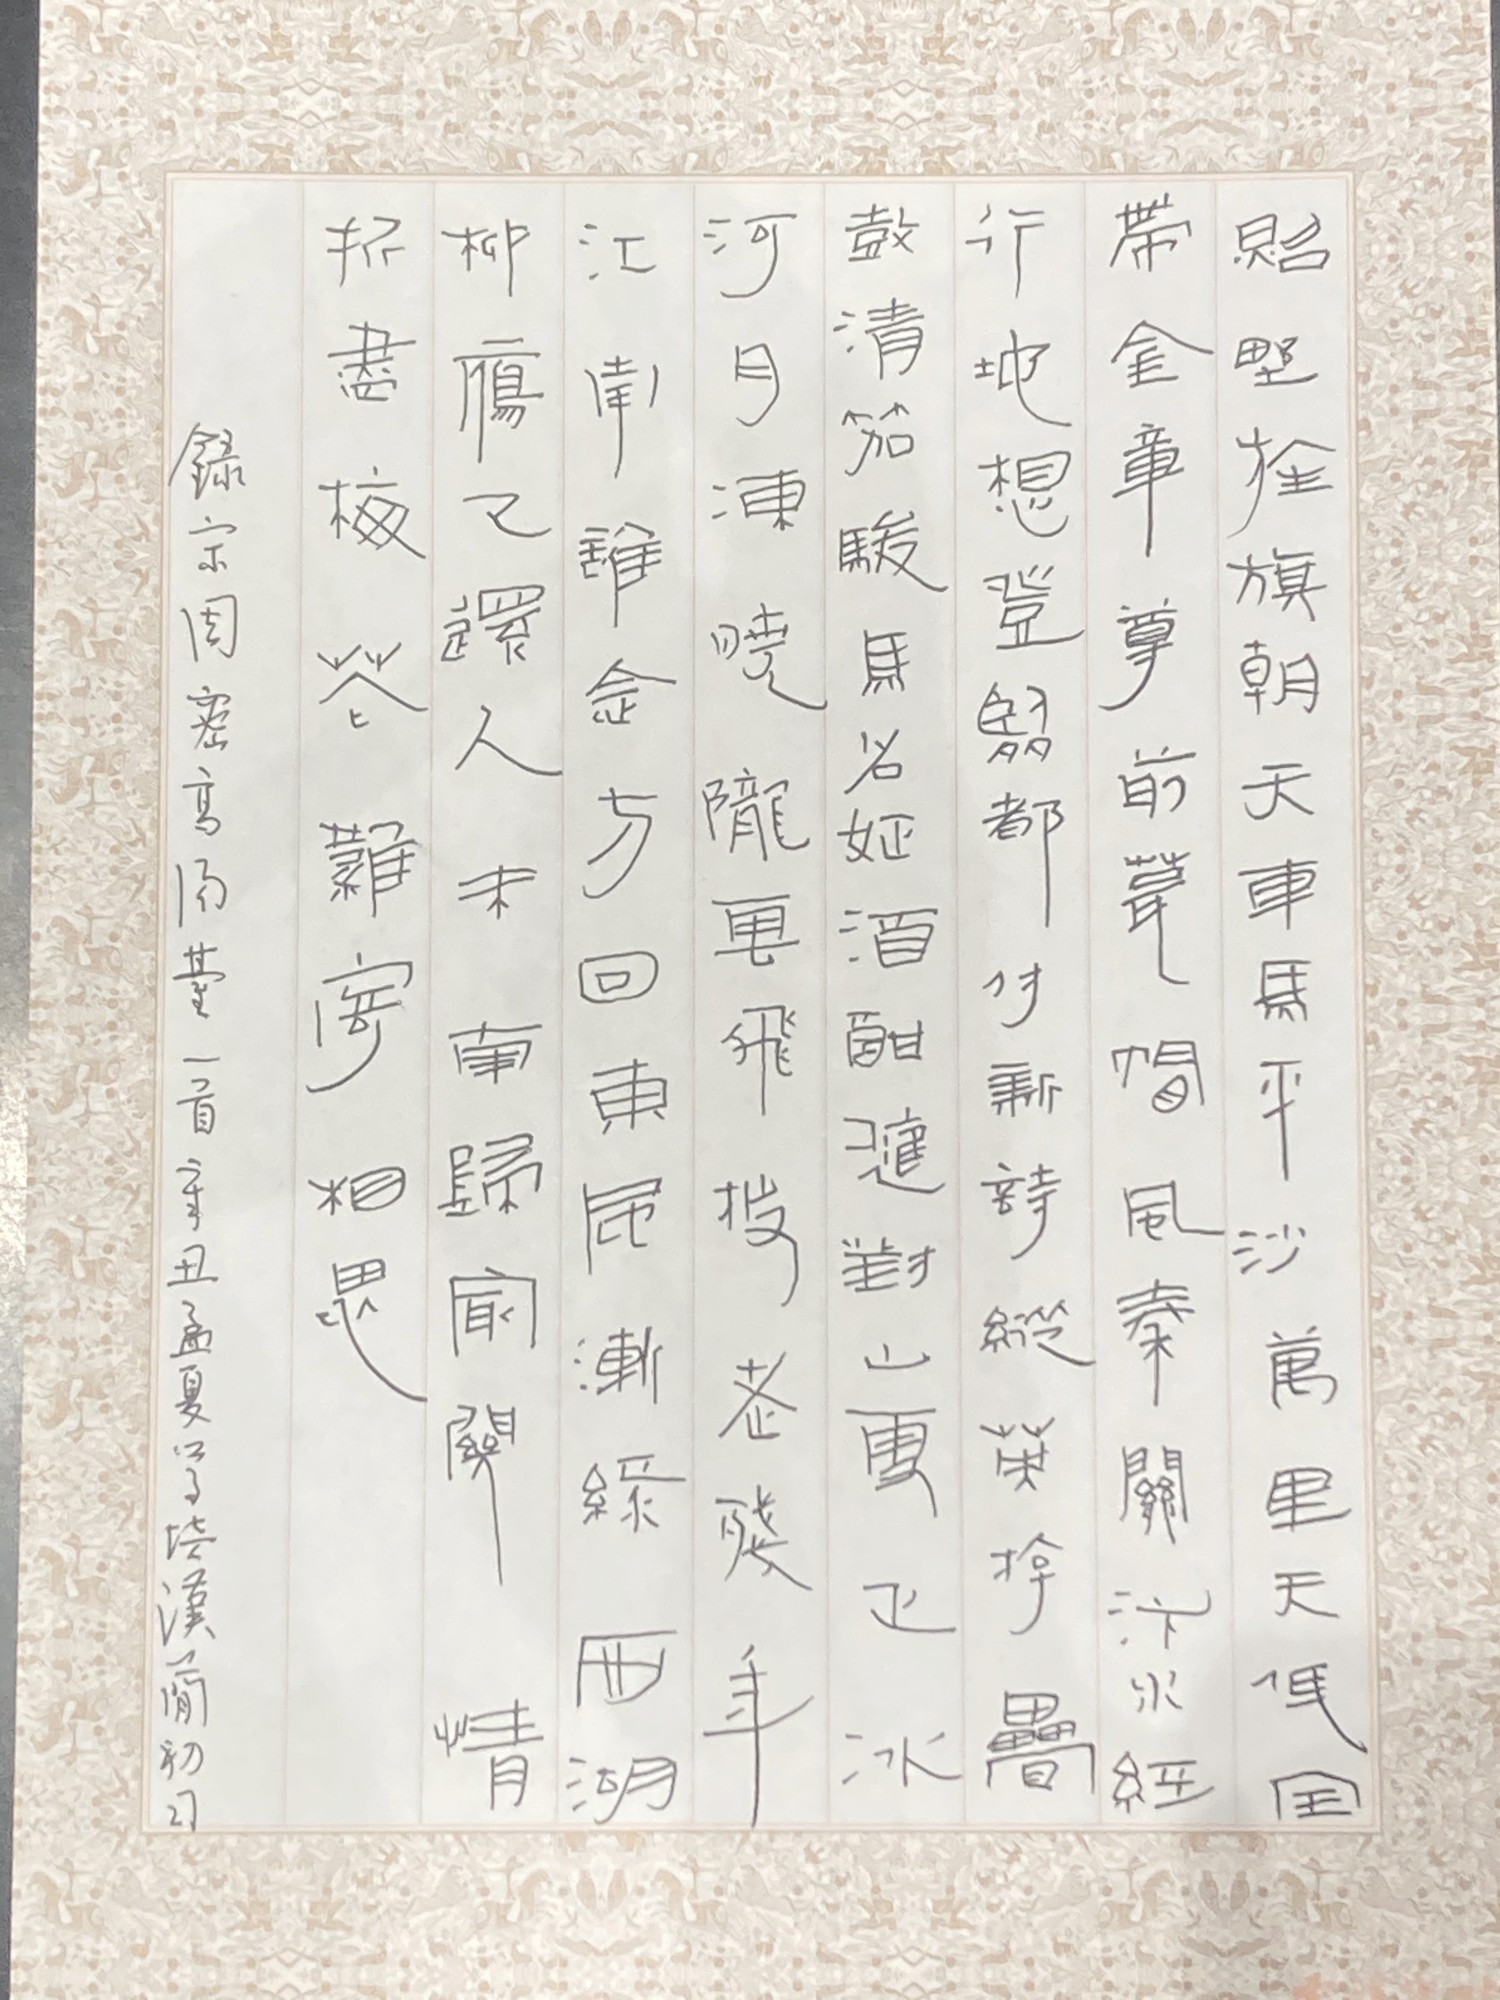 照野旌旗朝天車馬平沙萬里天低寶
帶金章尊前茸帽風秦關汴水經
行地想登臨都付新詩縱英游疊
鼓清笳駿馬名姬酒酣應對山雪正冰
河月凍曉隴雲飛投老殘年
江南誰念方回東風漸綠西湖
柳雁已還人未南歸最關情
折盡梅花難寄相思
錄宋周密高陽臺一首辛丑孟夏漢簡初習